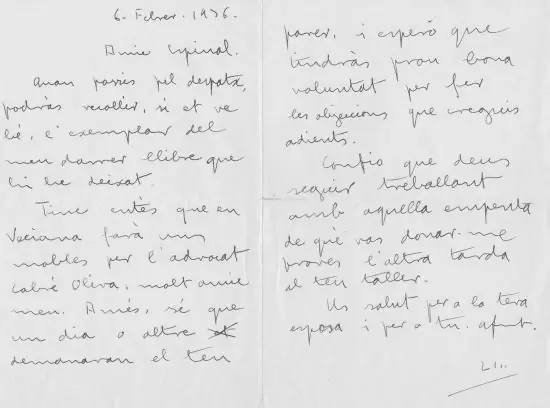 6. Febrer. 1976.
Amic Espinal.
Quan passis pel despatx,
podràs recollir, si et ve
bé, l'exemplar del
meu darrer llibre que
hi he deixat.
Tinc entès que en
Veciana farà uns
mobles per l'advocat
Cabré Oliva, molt amic
meu. Amés, sé que
un dia o altre
demanaran el teu
parer, i espero que
tindràs prou bona
voluntat per fer
les objeccions que creguis
adients.
Confio que deus
seguir treballant
amb aquella empenta
de què vas donar-me
proves l'altra tarda
al teu taller.
Un salut per a la teva
esposa i per a tu. afmt.